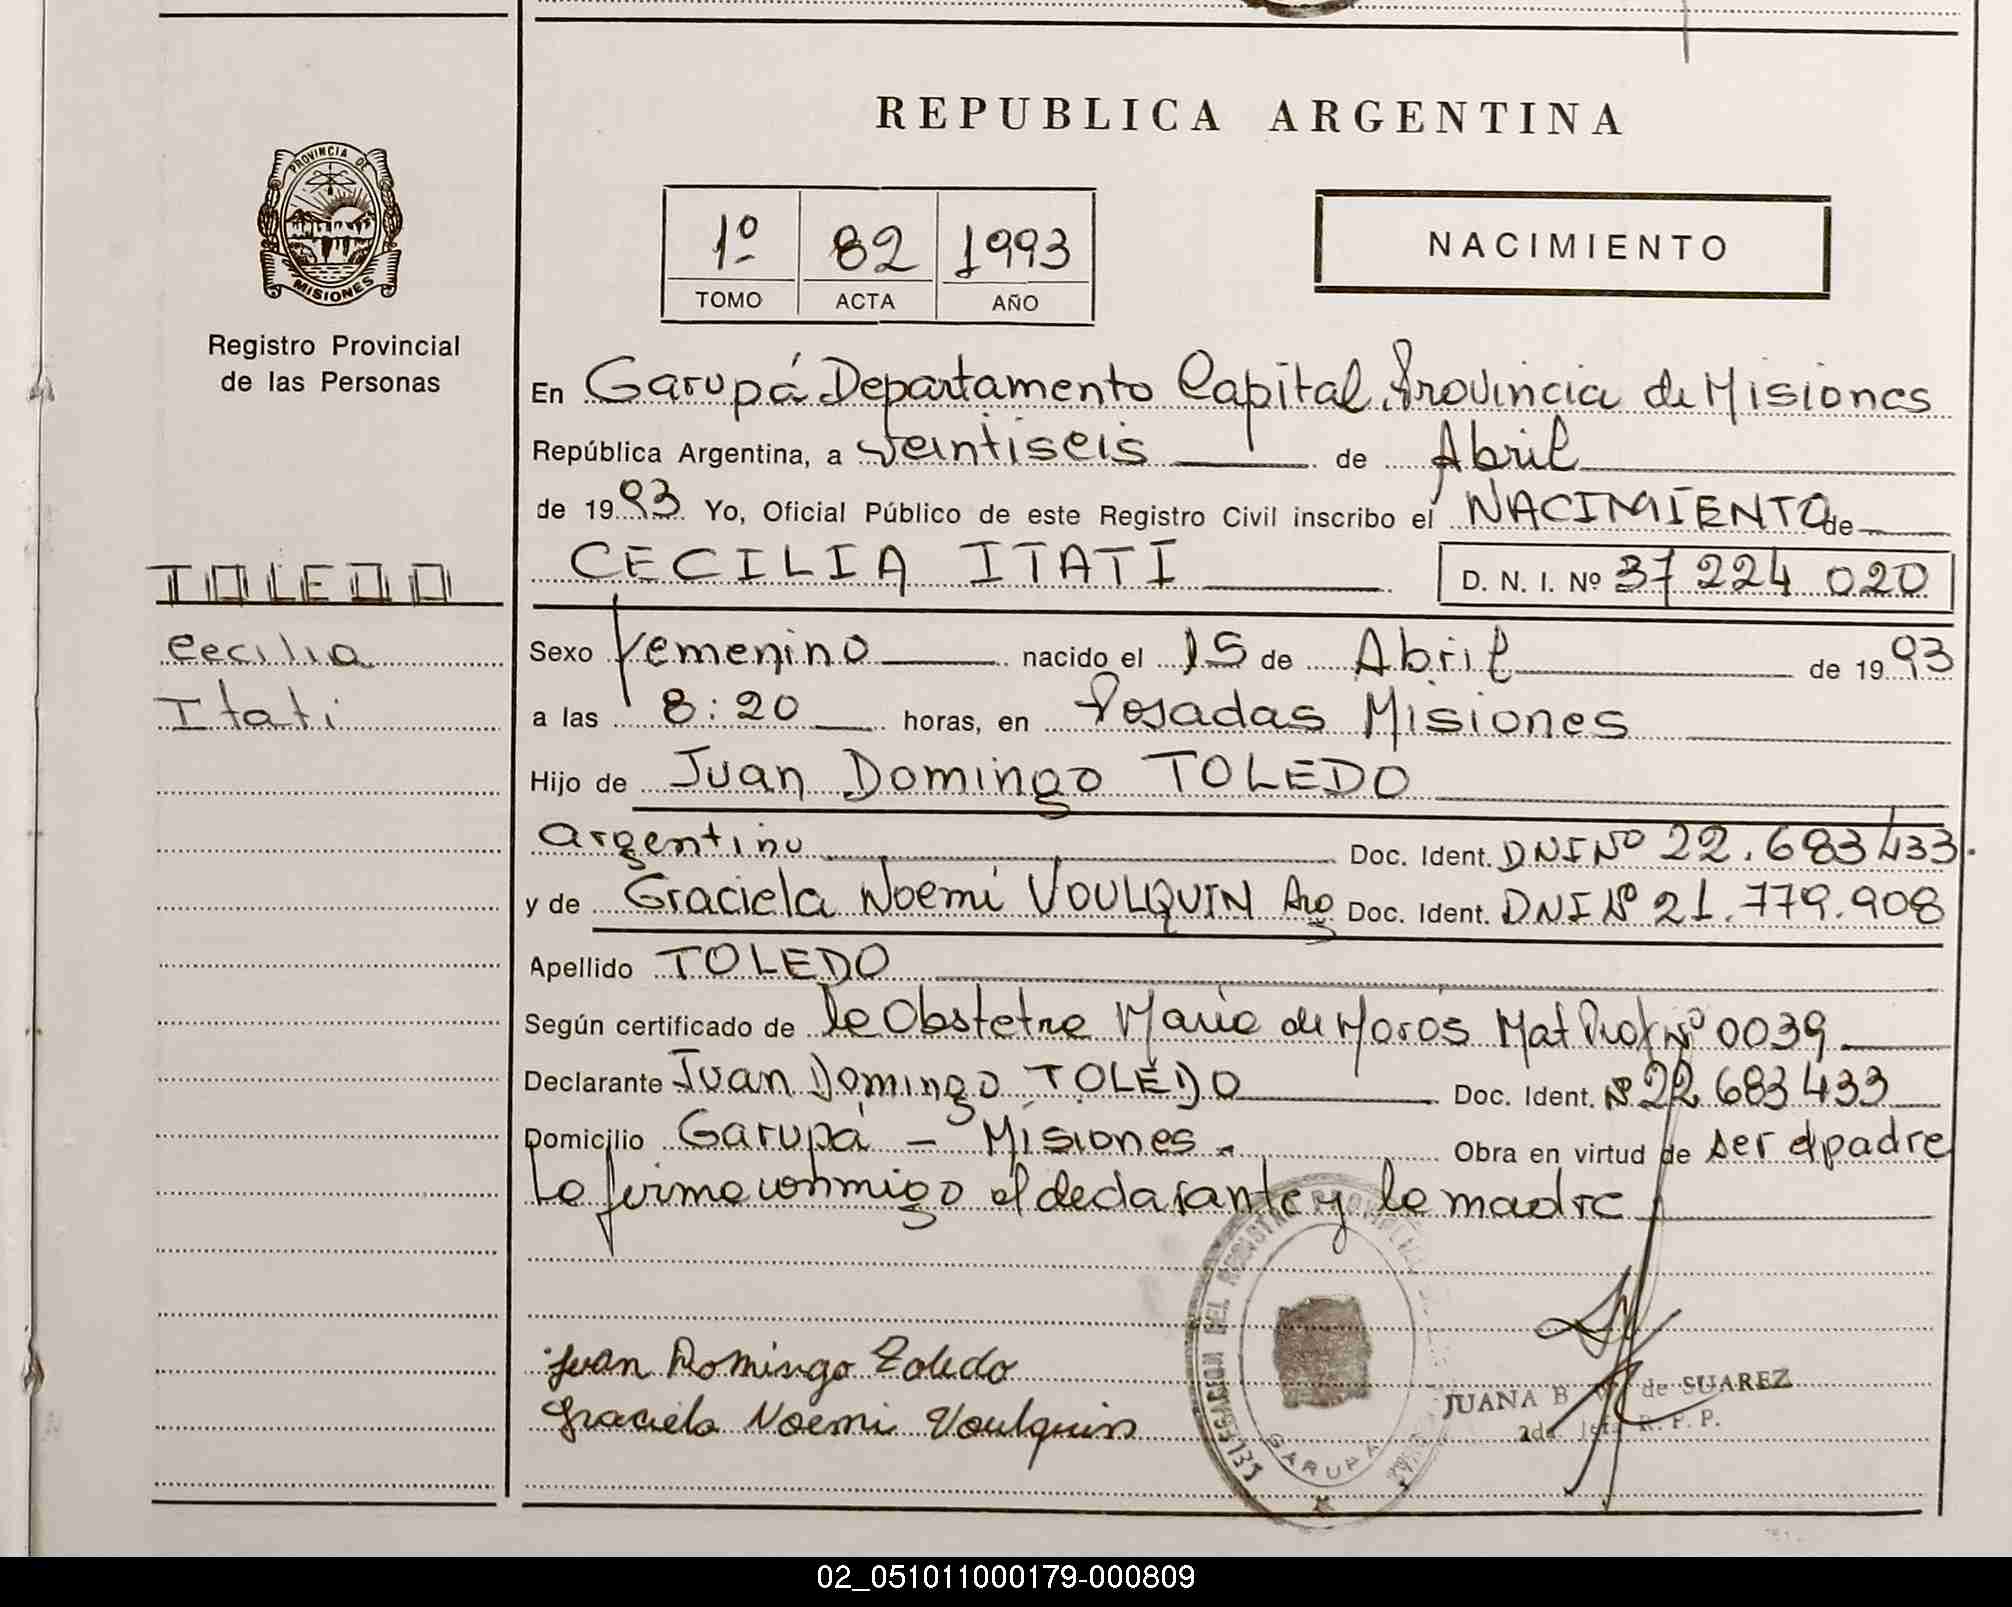 REPUBLICA ARGENTINA
PROVINCIA DE
MISIONES
Registro Provincial
de las Personas
1º 82 1993
TOMO ACTA AÑO
NACIMIENTO
En Garupá Departamento Capital Provincia de Misiones
República Argentina, a veintiseis de Abril
de 1993 Yo, Oficial Público de este Registro Civil inscribo el NACIMIENTO de
TOLEDO
CECILIA ITATI D. N. I. Nº 37 224 020
Cecilia
Itati
Sexo Femenino nacido el 15 de Abril de 1993
a las 8:20 horas, en Posadas Misiones
Hijo de Juan Domingo TOLEDO
argentino Doc. Ident. DNI Nº 22.683433.
y de Graciela Noemi VOULQUIN Arg Doc. Ident. DNI Nº 21.779.908
Apellido TOLEDO
Según certificado de la Obstetra Maria de Moros Mat Prof Nº 0039
Declarante Juan Domingo TOLEDO Doc. Ident. Nº 22 683 433
Domicilio Garupá - Misiones. Obra en virtud de ser el padre
La firma conmigo el declarante y la madre
Juan Domingo Toledo
Graciela Noemi Voulquin
DELEGACION DEL REGISTRO PROVINCIAL
GARUPA
JUANA B de SUAREZ
R. P. P.
02_051011000179-000809